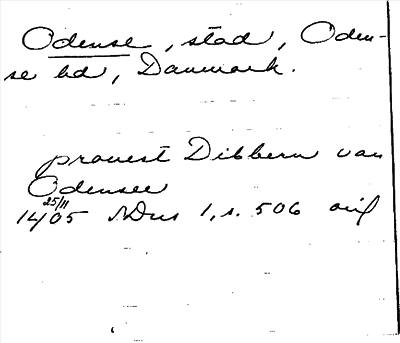 Odense, stad, Oden-
se hd, Danmark.
provest Dibbern van
Odensee
14 25/11 05 NDns 1, s. 506 orig